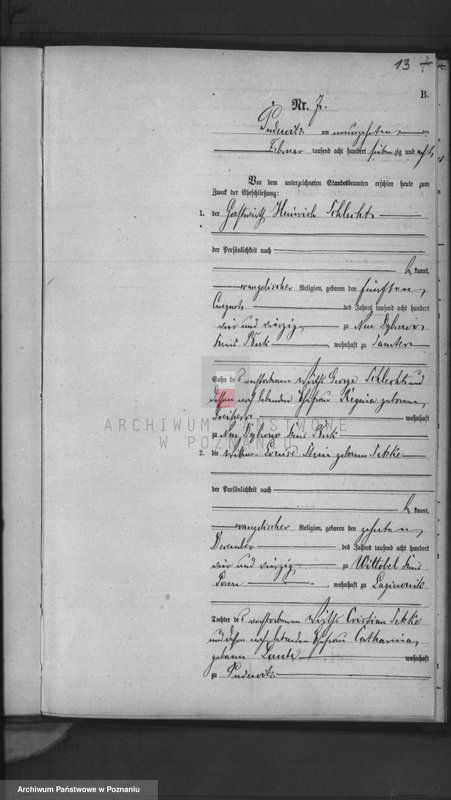 13
B.
Nr. 7.
Pudewitz am neunzehnten
Februar tausend acht hundert siebenzig und acht
Vor dem unterzeichneten Standesbeamten erschien heute zum
Zweck der Eheschließung:
1. der Gastwirth Heinrich Schlecht
der Persönlichkeit nach
be kannt,
evangelischer Religion, geboren den fünften
August des Jahres tausend acht hundert
vier und vierzig zu Neu
Kreis Buk, wohnhaft zu Samter
Sohn des verstorbenen Wirths George Schlecht und
dessen noch lebenden Ehefrau Regina geborene
wohnhaft
zu Neu Kreis Buk
2. die Wittwe Louise geborene Tekke
der Persönlichkeit nach
be kannt,
evangelischer Religion, geboren den zehnten
December des Jahres tausend acht hundert
vier und vierzig zu Wittobel Kreis
Posen, wohnhaft zu Lagiewnik
Tochter des verstorbenen Wirths Cristian Tekke
und dessen noch lebenden Ehefrau Catharina
geborene wohnhaft
zu Pudewitz
ARCHIWUM PAŃSTWOWE
W POZNANIU
Archiwum Państwowe w Poznaniu